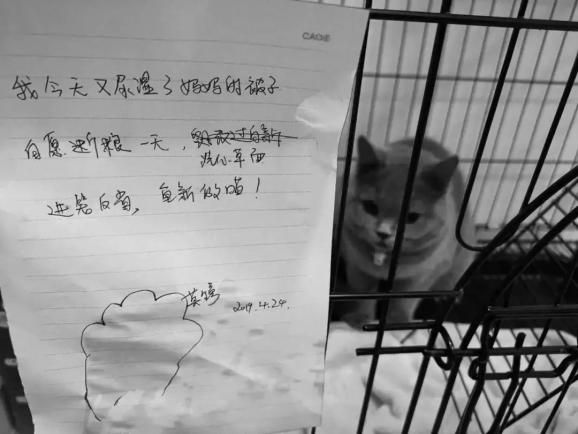 CAGIE
我今天又尿湿了妈妈的被子
自愿断粮一天，
洗心革面
进笼反省，重新做喵！
2019.4.24.